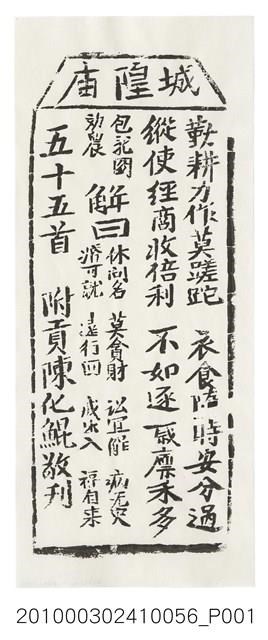 城隍庙
勤耕力作莫蹉跎 衣食隨時安分過
縱使經商收倍利 不如逐歲廩禾多
包龍圖
勸農
解曰
休問名 莫貪財 訟宜解 病无災
婚可就 遠行回 戒出入 福自来
五十五首 附貢陳化鯤敬刊
201000302410056_P001